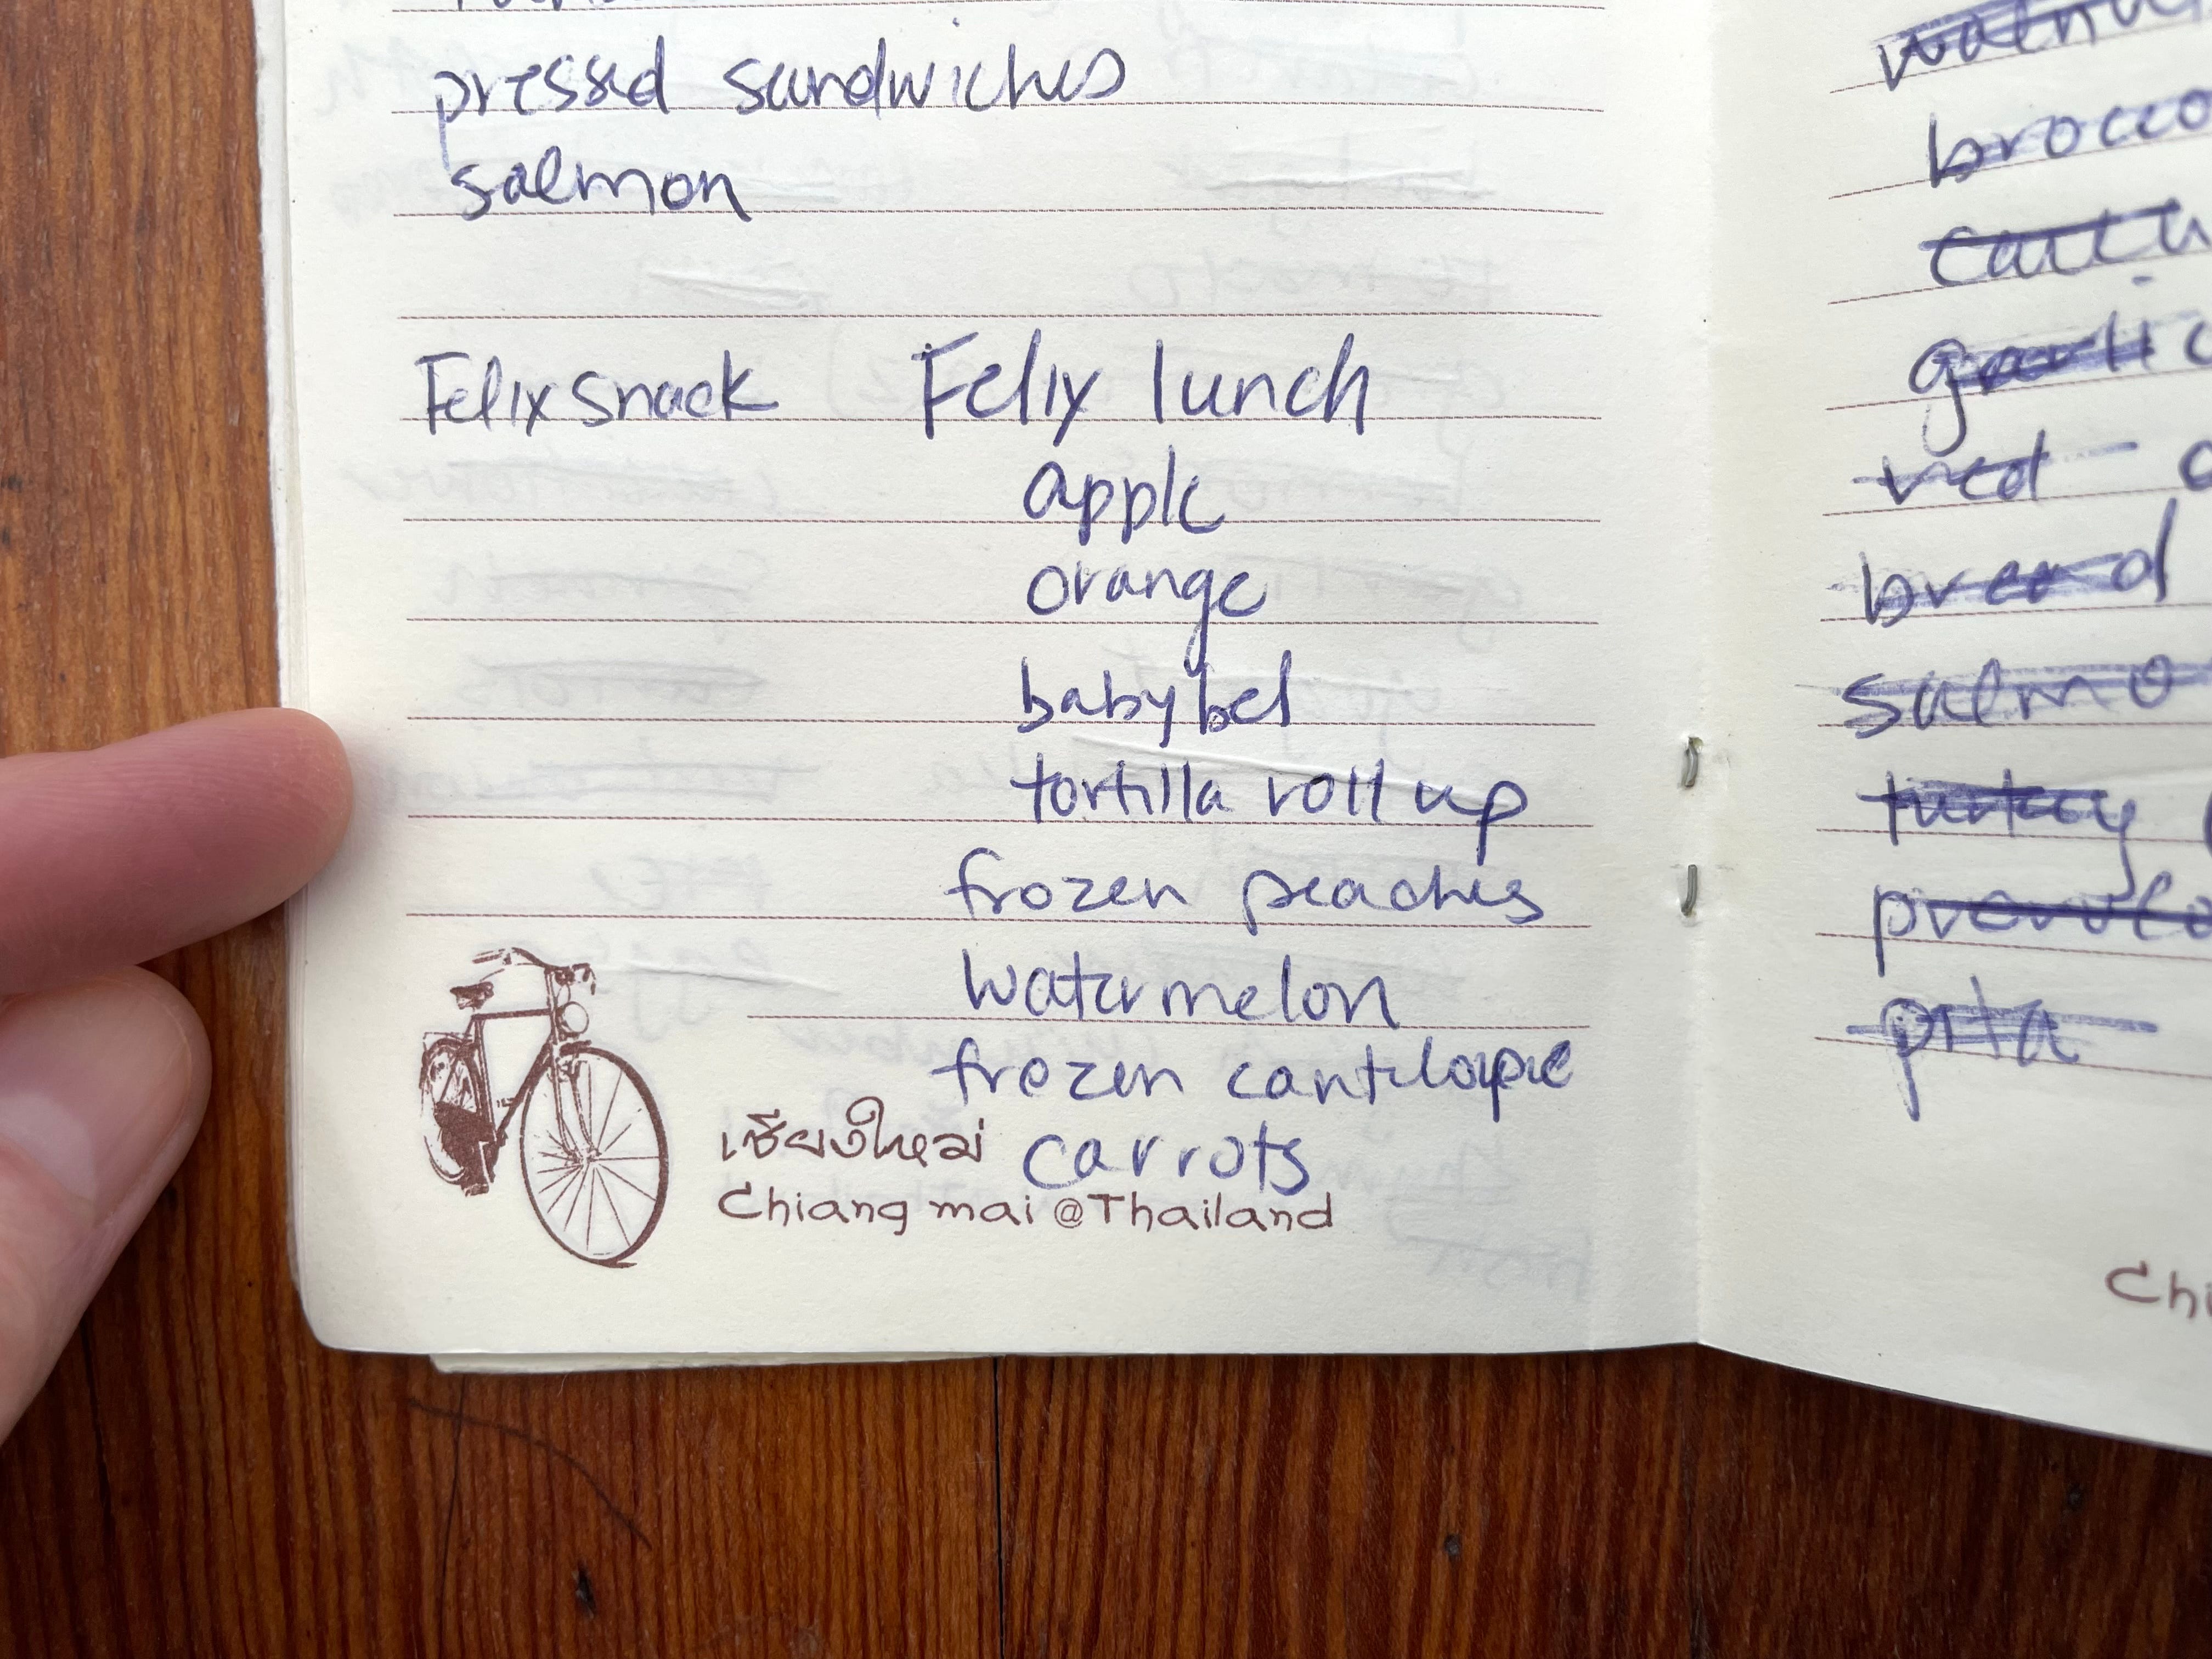 pressed sandwiches
salmon
Felix snack Felix lunch
apple
orange
babybel
tortilla roll up
frozen peaches
watermelon
frozen cantelope
เชียงใหม่ carrots
Chiang mai @Thailand
brocco
garlic
red
bread
salmo
turkey
pita
Chi